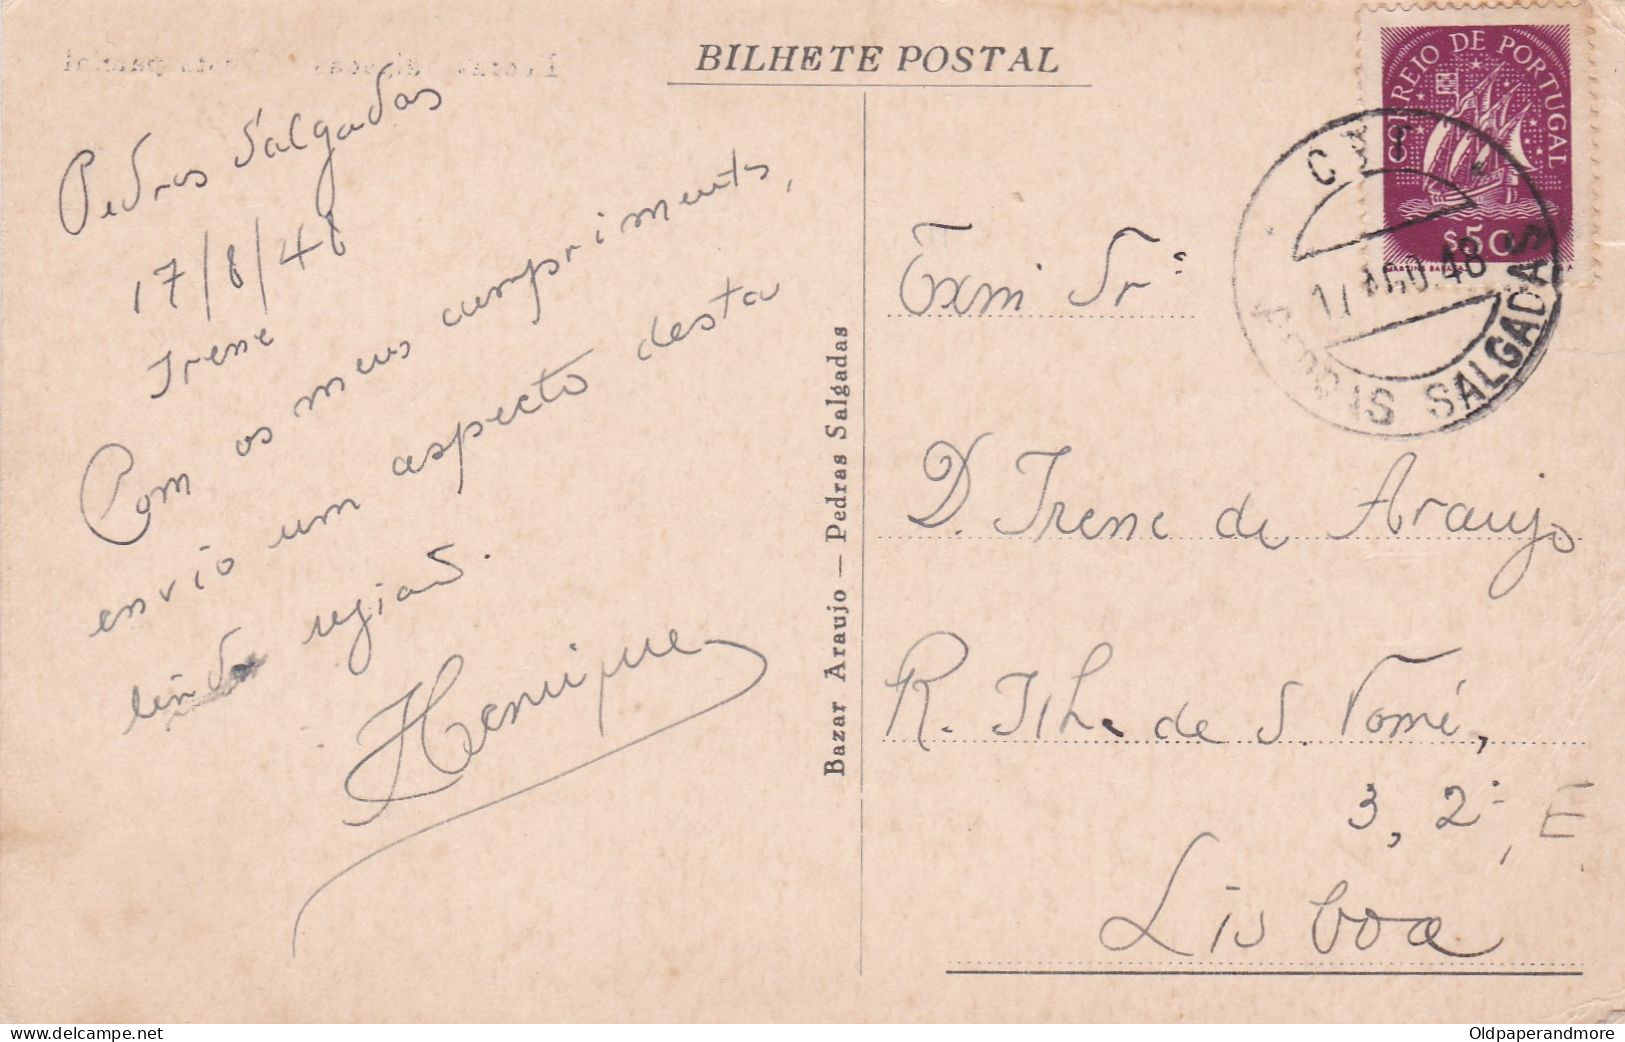 BILHETE POSTAL
Pedras Salgadas
17/8/48
Irene
Com os meus cumprimentos,
envio um aspecto desta
linda região.
Henrique
Bazar Araujo — Pedras Salgadas
CORREIO DE PORTUGAL
$50
CTT
17 AGO 48
PEDRAS SALGADAS
Exmª Srª
D. Irene de Araujo
R. Ilha de S. Tomé,
3, 2º, E
Lisboa
Oldpaperandmore